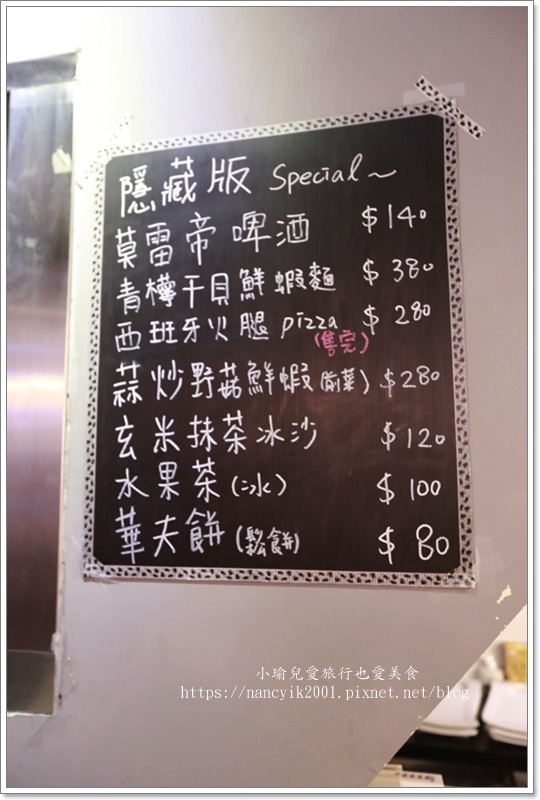 隱藏版 Special~
莫雷帝啤酒 $140
青檸干貝鮮蝦麵 $380
西班牙火腿 pizza $280
(售完)
蒜炒野菇鮮蝦(前菜) $280
玄米抹茶冰沙 $120
水果茶(冰) $100
華夫餅(鬆餅) $80
小瑜兒愛旅行也愛美食
https://nancyik2001.pixnet.net/blog